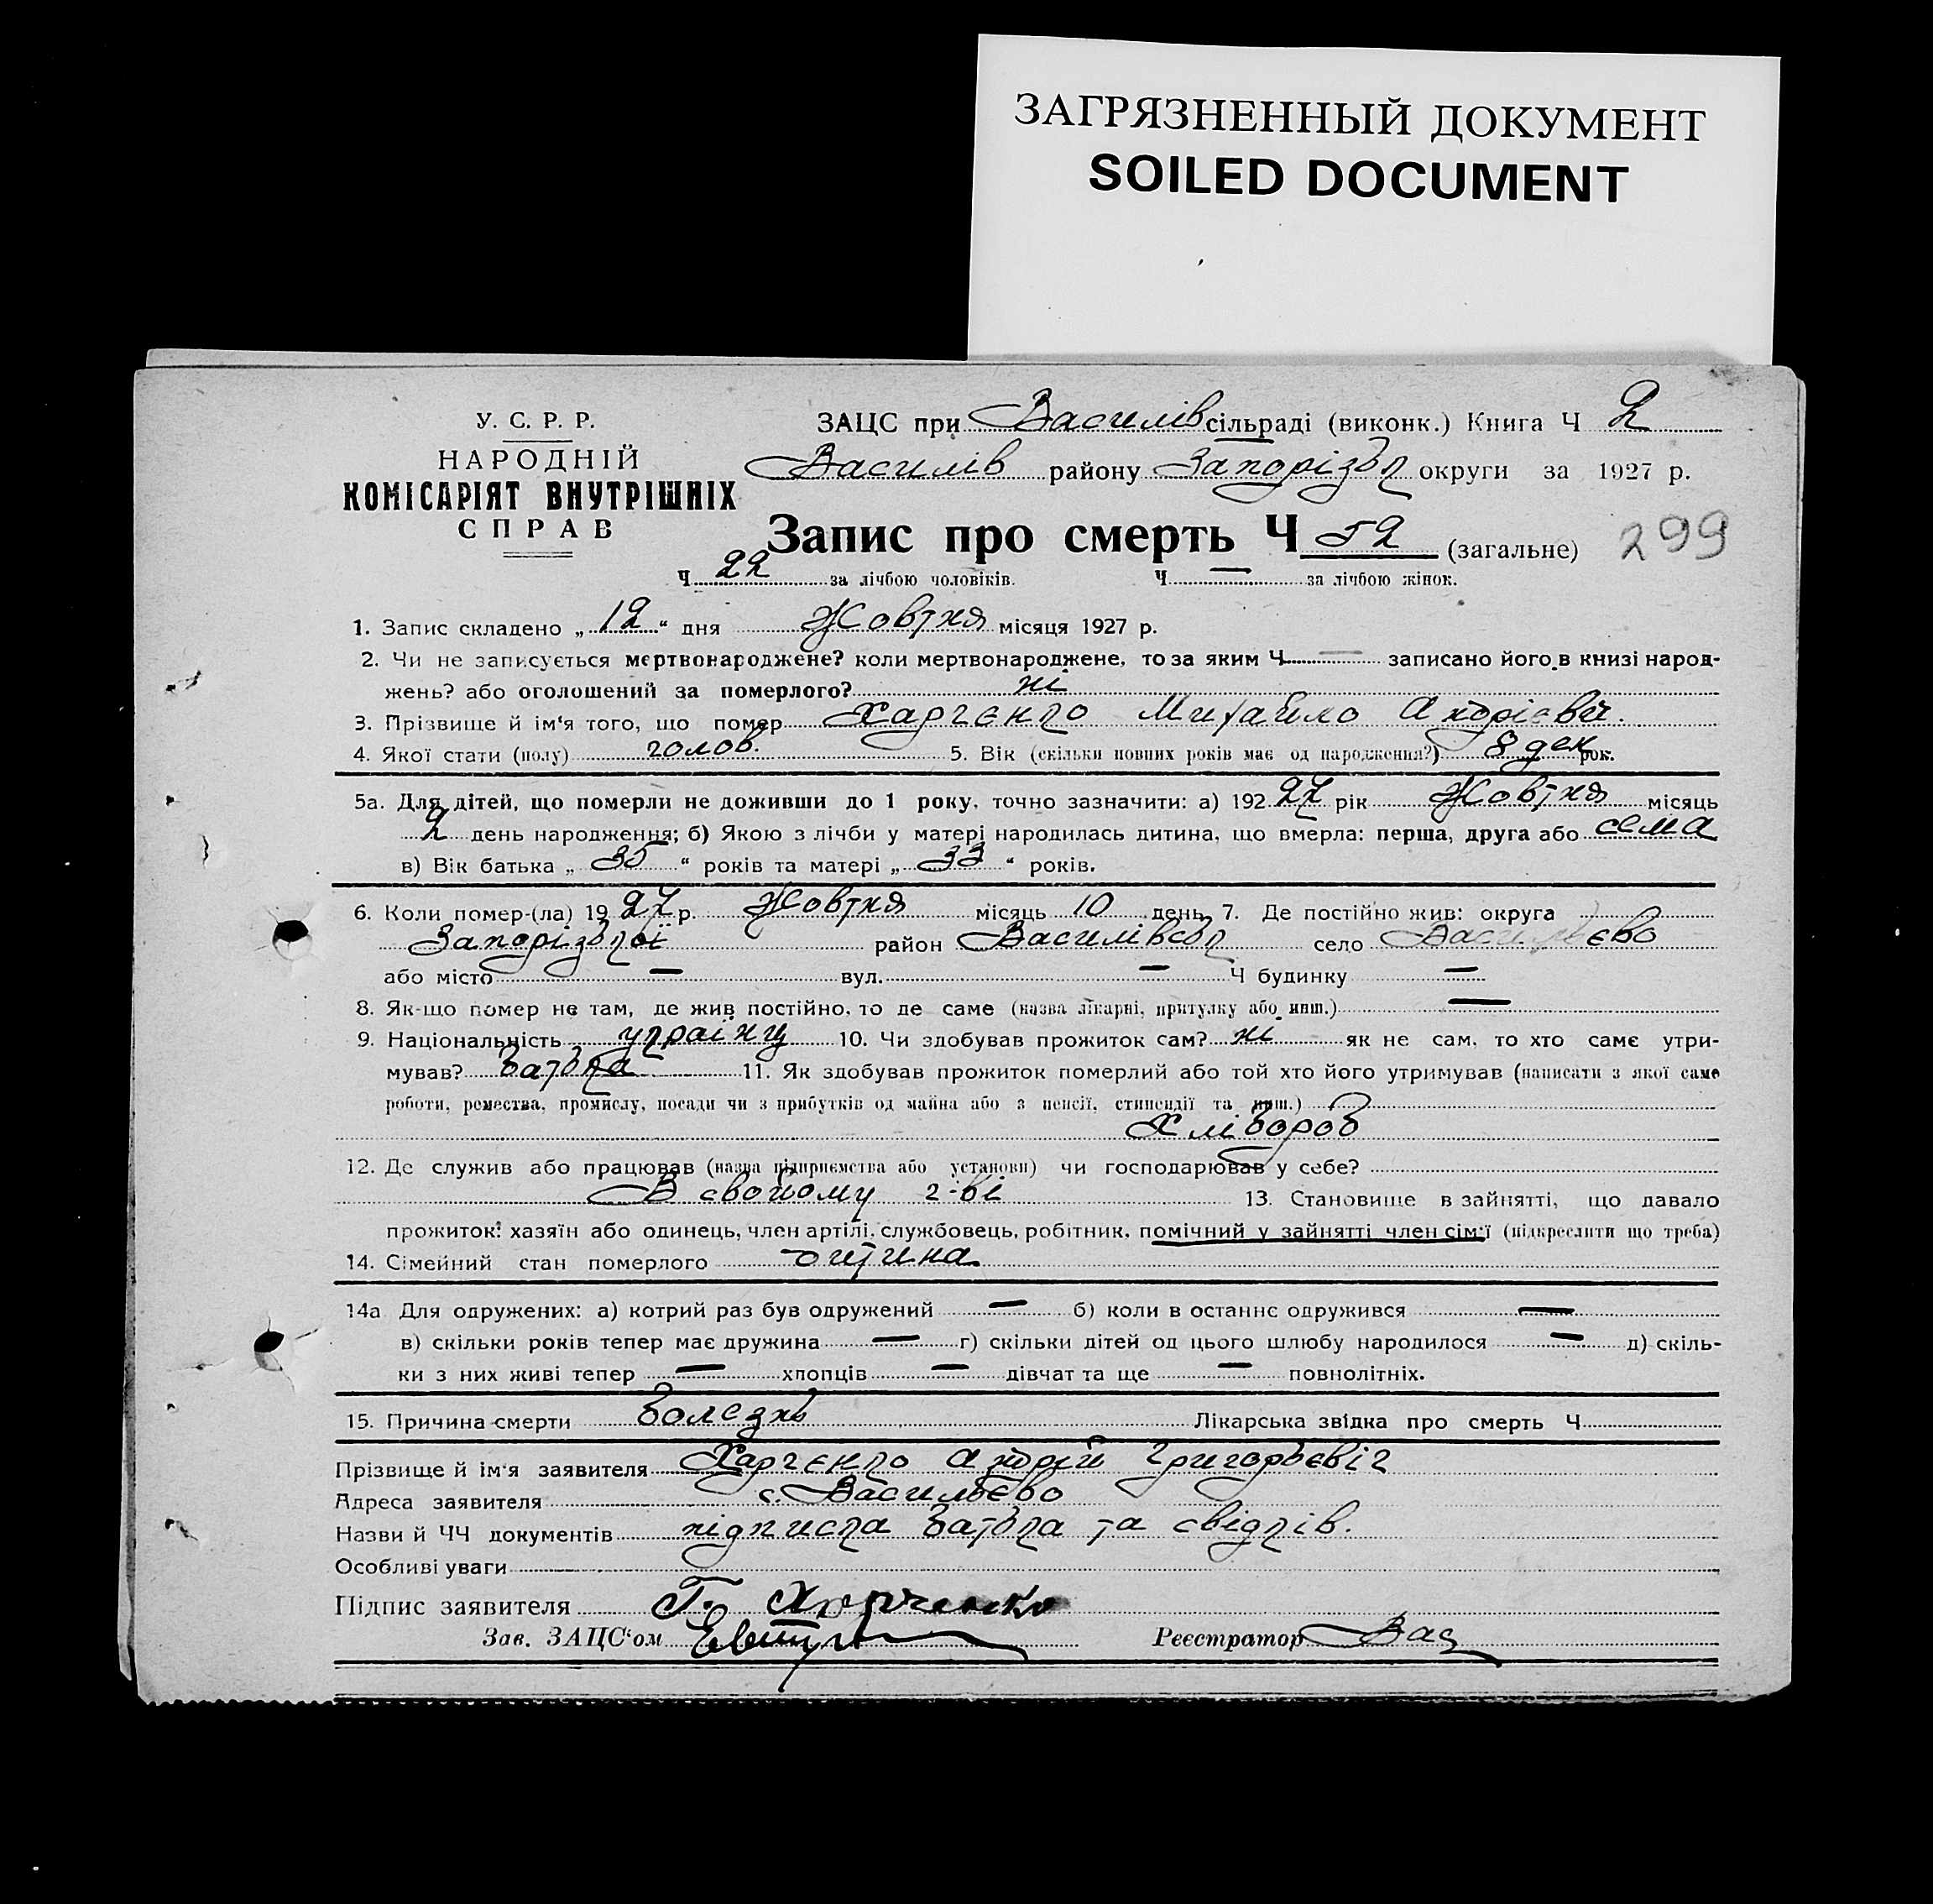 ЗАГРЯЗНЕННЫЙ ДОКУМЕНТ
SOILED DOCUMENT
У. С. Р. Р.
НАРОДНІЙ
КОМІСАРІЯТ ВНУТРІШНІХ
СПРАВ
ЗАЦС при Василів сільраді (виконк.) Книга Ч 2
Василів району Запорізьк округи за 1927 р.
Запис про смерть Ч 52 (загальне) 299
Ч 22 за лічбою чоловіків. Ч — за лічбою жінок.
1. Запис складено „ 12 “ дня Жовтня місяця 1927 р.
2. Чи не записується мертвонароджене? коли мертвонароджене, то за яким Ч — записано його в книзі народ-
жень? або оголошений за померлого? ні
3. Прізвище й ім'я того, що помер Харченко Михайло Андрієвич.
4. Якої стати (полу) голов. 5. Вік (скільки повних років має од народження?) 8 ден рок.
5а. Для дітей, що померли не доживши до 1 року, точно зазначити: а) 192 27 рік Жовтня місяць
2 день народження; б) Якою з лічби у матері народилась дитина, що вмерла: перша, друга або сема
в) Вік батька „ 35 “ років та матері „ 33 “ років.
6. Коли помер-(ла) 19 27 р. Жовтня місяць 10 день 7. Де постійно жив: округа
Запорізької район Василівськ село Васильєво
або місто — вул. — Ч будинку —
8. Як-що помер не там, де жив постійно, то де саме (назва лікарні, притулку або инш.) —
9. Національність українц 10. Чи здобував прожиток сам? ні як не сам, то хто саме утри-
мував? батька 11. Як здобував прожиток померлий або той хто його утримував (написати з якої саме
роботи, ремества, промислу, посади чи з прибутків од майна або з пенсії, стипендії та инш.)
Хлібороб
12. Де служив або працював (назва підприємства або установи) чи господарював у себе?
В свойому г-ві 13. Становище в зайнятті, що давало
прожиток: хазяїн або одинець, член артілі, службовець, робітник, помічний у зайнятті член сім'ї (підкреслити що треба)
14. Сімейний стан померлого дитина
14а Для одружених: а) котрий раз був одружений — б) коли в останнє одружився —
в) скільки років тепер має дружина — г) скільки дітей од цього шлюбу народилося — д) скіль-
ки з них живі тепер — хлопців — дівчат та ще — повнолітніх.
15. Причина смерти болезнь Лікарська звідка про смерть Ч
Прізвище й ім'я заявителя Харченко Андрій Григорьєвіч
Адреса заявителя с. Васильєво
Назви й ЧЧ документів підписка батька та свідків.
Особливі уваги
Підпис заявителя Г. Харченко
Зав. ЗАЦС'ом Реєстратор Вас